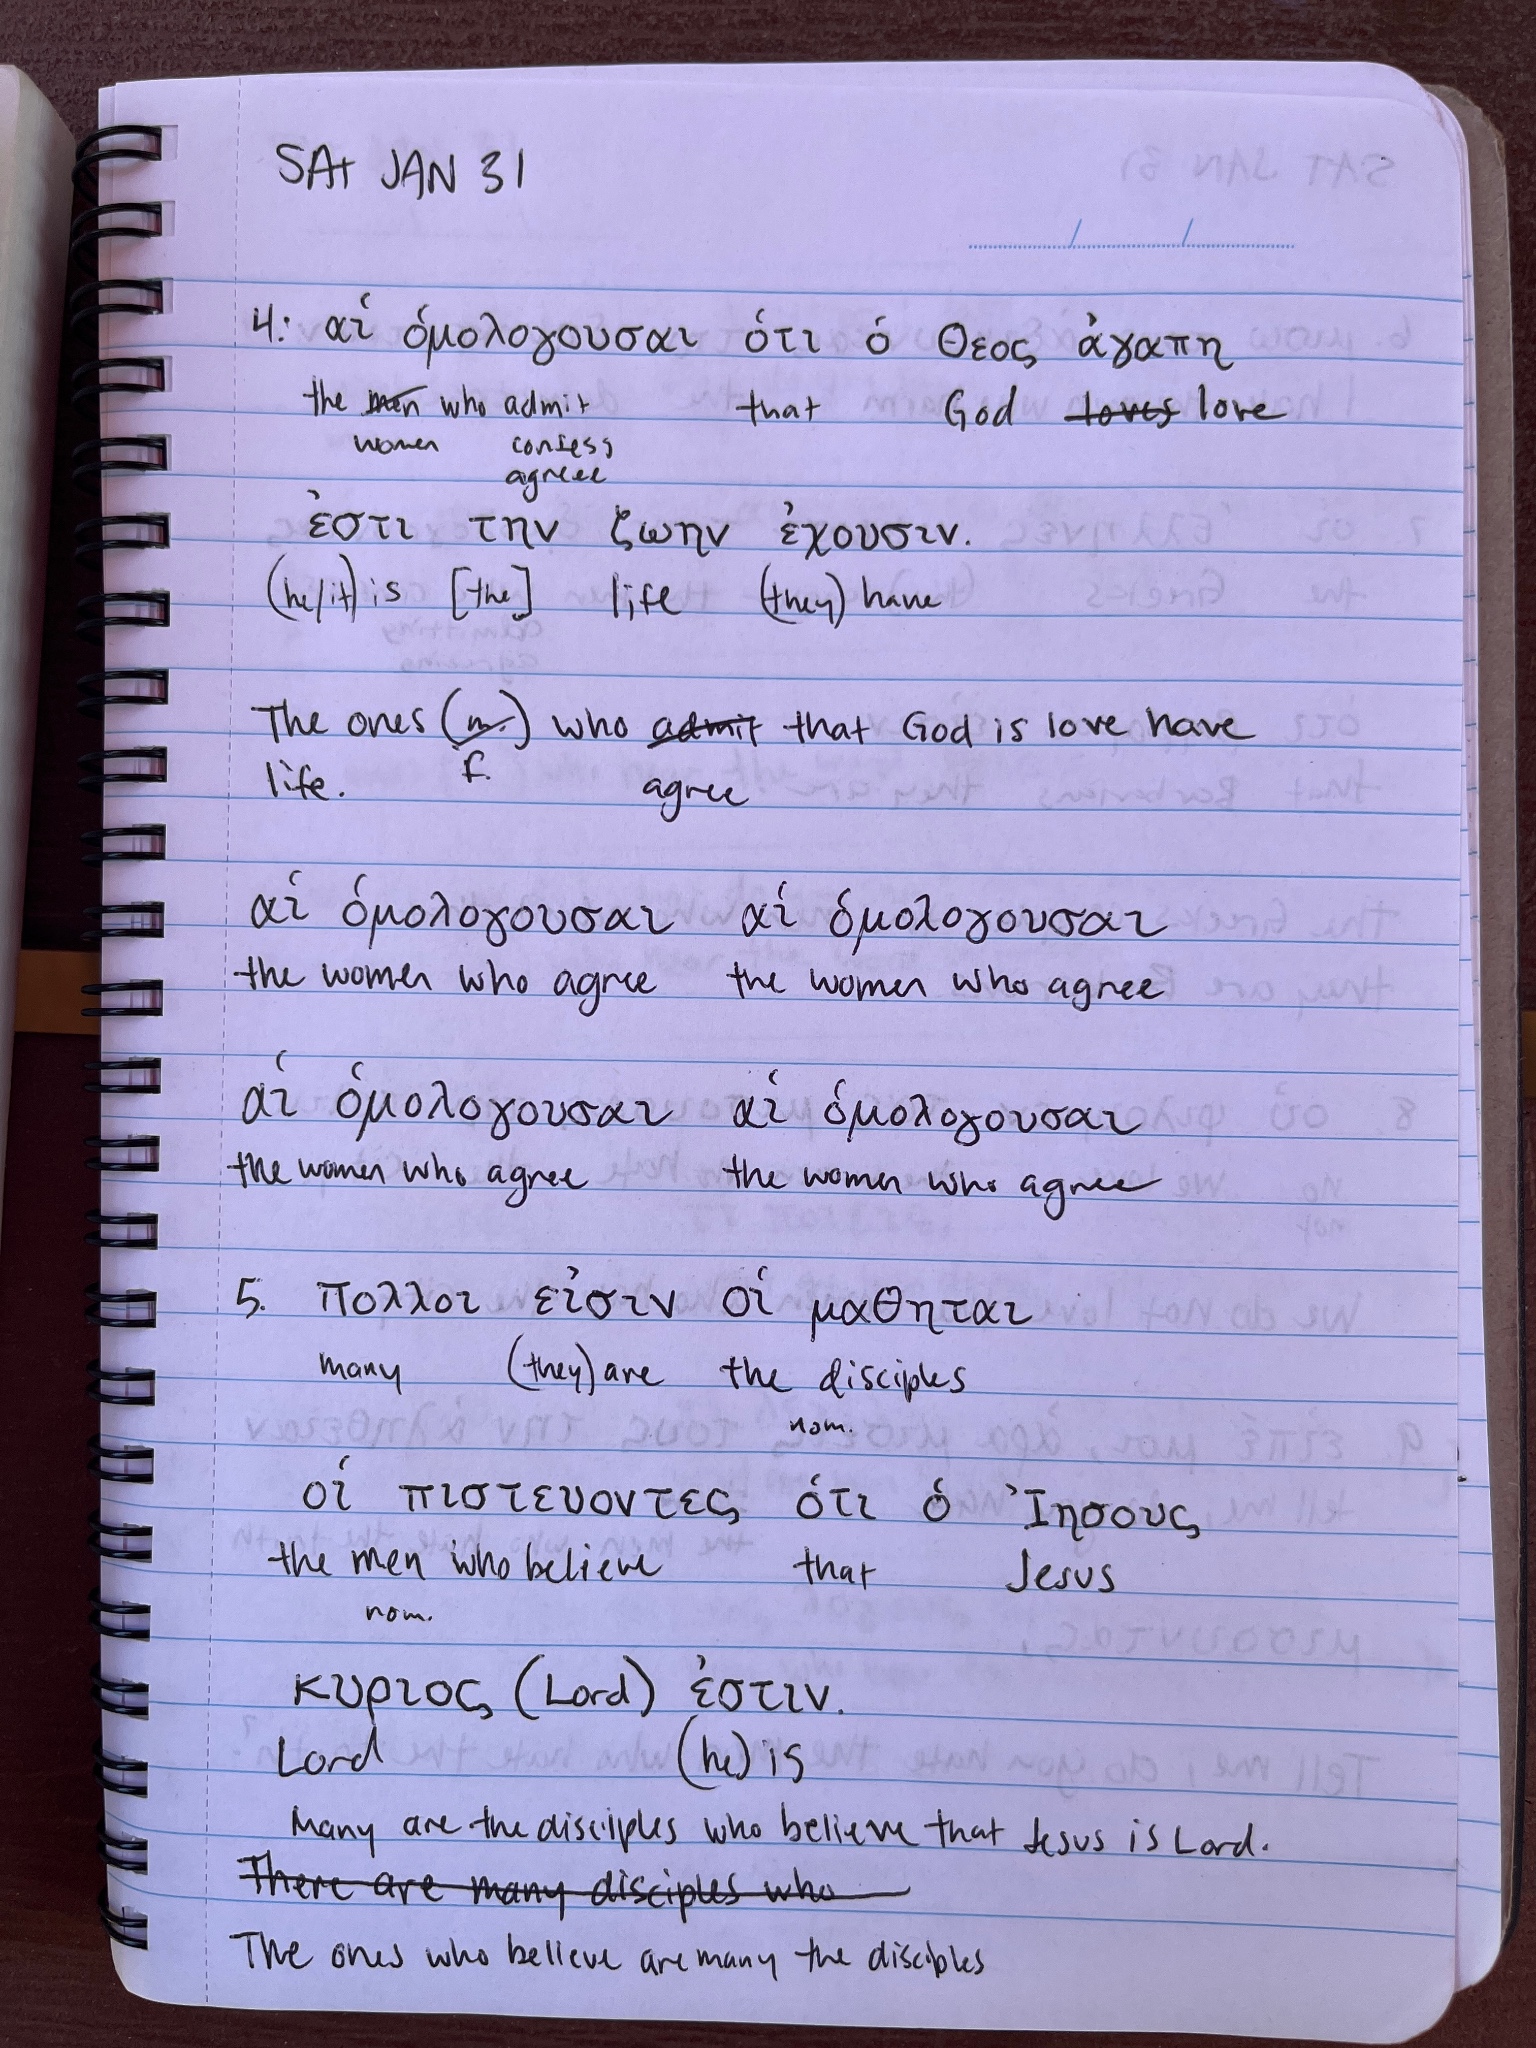 SAt JAN 31
4: αἱ ὁμολογουσαι ὁτι ὁ Θεος ἀγαπη
the men who admit that God loves love
women confess
agree
ἐστι την ζωην ἐχουσιν.
(he/it) is [the] life (they) have
The ones (m.) who admit that God is love have
life. f. agree
αἱ ὁμολογουσαι αἱ ὁμολογουσαι
the women who agree the women who agree
αἱ ὁμολογουσαι αἱ ὁμολογουσαι
the women who agree the women who agree
5. πολλοι εἰσιν οἱ μαθηται
many (they) are the disciples
nom.
οἱ πιστευοντες ὁτι ὁ Ἰησους
the men who believe that Jesus
nom.
κυριος (Lord) ἐστιν.
Lord (he) is
Many are the disciples who believe that Jesus is Lord.
There are many disciples who
The ones who believe are many the disciples